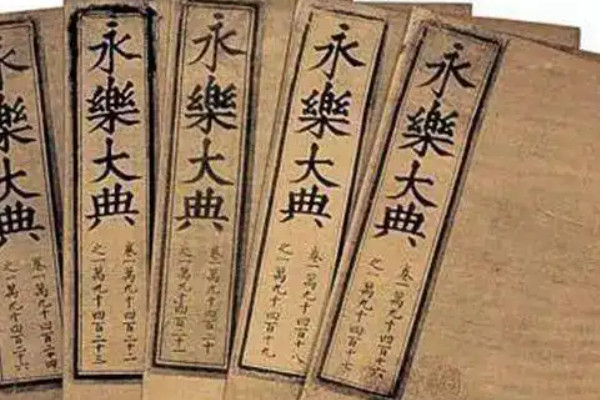 永樂大典
卷一萬九千四百十六
之一萬九千四百十七
永樂大典
卷一萬九千四百十八
之一萬九千四百十九
永樂大典
卷一萬九千四百二十
之一萬九千四百二十一
永樂大典
卷一萬九千四百二十二
之一萬九千四百二十三
永樂大典
卷一萬九千四百二十四
之一萬九千四百二十六